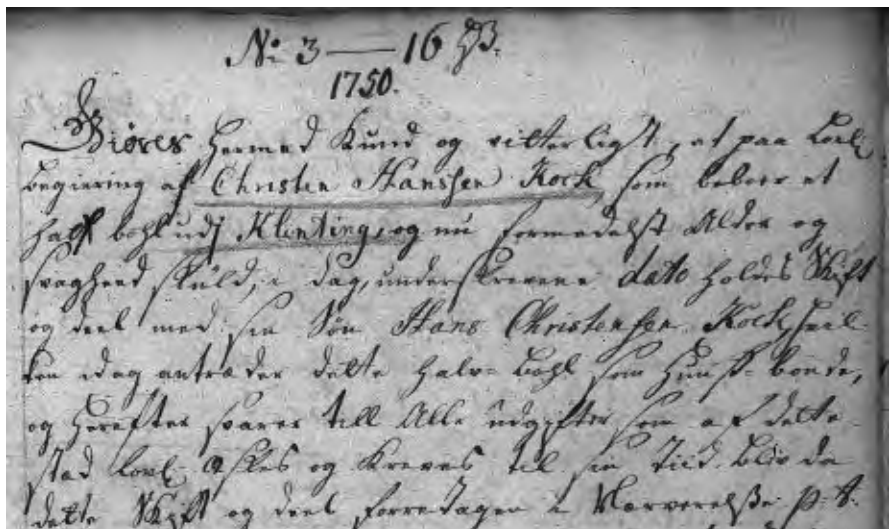 No 3 — 16 ß.
1750.
Giöres hermed Kund og vitterligt, at paa Lovl:
begiering af Christen Hanssen Kock, som beboer et
half bohl udj Klinting, og nu formedelst Alder og
svaghed skuld, i dag, underskrevene dato holdes Skift
og deel med sin Søn Hans Christensen Kock, hvil-
ken idag antræder dette halv-bohl som Huus-bonde,
og herefter svarer till Alle udgifter som af dette
stæd lovl: æskes og Kreves til sin Tiid. blev da
dette Skift og deel forretagen i Nærverelse p. t.